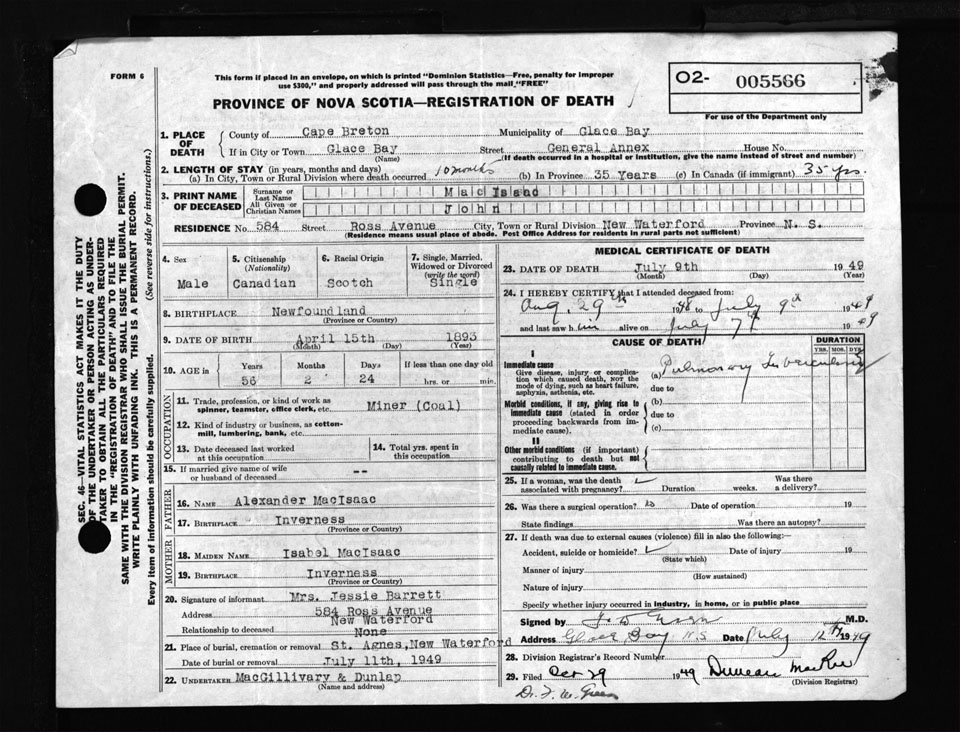 FORM 6
This form if placed in an envelope, on which is printed "Dominion Statistics—Free, penalty for improper
use $300," and properly addressed will pass through the mail "FREE"
PROVINCE OF NOVA SCOTIA—REGISTRATION OF DEATH
O2- 005566
For use of the Department only
1. PLACE OF DEATH
County of Cape Breton Municipality of Glace Bay
If in City or Town Glace Bay Street General Annex House No.
(Name) (If death occurred in a hospital or institution, give the name instead of street and number)
2. LENGTH OF STAY (in years, months and days)
(a) In City, Town or Rural Division where death occurred 10 months (b) In Province 35 Years (c) In Canada (if immigrant) 35 yrs.
3. PRINT NAME OF DECEASED
Surname or Last Name MacIsaac
All Given or Christian Names John
RESIDENCE No. 584 Street Ross Avenue City, Town or Rural Division New Waterford Province N. S.
(Residence means usual place of abode. Post Office Address for residents in rural parts not sufficient)
4. Sex
Male
5. Citizenship
(Nationality)
Canadian
6. Racial Origin
Scotch
7. Single, Married,
Widowed or Divorced
(write the word)
Single
8. BIRTHPLACE Newfoundland
(Province or Country)
9. DATE OF BIRTH April 15th 1893
(Month) (Day) (Year)
10. AGE in
Years Months Days If less than one day old
56 2 24 hrs. or min.
OCCUPATION
11. Trade, profession, or kind of work as
spinner, teamster, office clerk, etc. Miner (Coal)
12. Kind of industry or business, as cotton-
mill, lumbering, bank, etc.
13. Date deceased last worked
at this occupation
14. Total yrs. spent in
this occupation
15. If married give name of wife
or husband of deceased --
FATHER
16. NAME Alexander MacIsaac
17. BIRTHPLACE Inverness
(Province or Country)
MOTHER
18. MAIDEN NAME Isabel MacIsaac
19. BIRTHPLACE Inverness
(Province or Country)
20. Signature of informant Mrs. Jessie Barrett
Address 584 Ross Avenue
New Waterford
Relationship to deceased None
21. Place of burial, cremation or removal St. Agnes, New Waterford
Date of burial or removal July 11th, 1949
22. UNDERTAKER MacGillivary & Dunlap
(Name and address)
MEDICAL CERTIFICATE OF DEATH
23. DATE OF DEATH July 9th 1949
(Month) (Day) (Year)
24. I HEREBY CERTIFY that I attended deceased from:
Aug. 29th 1948 July 9th 1949
and last saw him alive on July 7th 1949
CAUSE OF DEATH
DURATION
YRS. MOS. DYS.
I
Immediate cause
Give disease, injury or compli-
cation which caused death, NOT the
mode of dying, such as heart failure,
asphyxia, asthenia, etc.
(a) Pulmonary Tuberculosis
due to
Morbid conditions, if any, giving rise to
immediate cause (stated in order
proceeding backwards from im-
mediate cause).
(b)
due to
(c)
II
Other morbid conditions (if important)
contributing to death but not
causally related to immediate cause.
25. If a woman, was the death
associated with pregnancy? Duration weeks. Was there
a delivery?
26. Was there a surgical operation? Date of operation 19
State findings Was there an autopsy?
27. If death was due to external causes (violence) fill in also the following:—
Accident, suicide or homicide? Date of injury 19
(State which)
Manner of injury
(How sustained)
Nature of injury
Specify whether injury occurred in industry, in home, or in public place
Signed by M.D.
Address Glace Bay N.S Date July 12th 1949
28. Division Registrar's Record Number
29. Filed Oct 29 1949 Duncan MacRae
(Division Registrar)
Dr. F. W. Green
SEC. 46—VITAL STATISTICS ACT MAKES IT THE DUTY
OF THE UNDERTAKER OR PERSON ACTING AS UNDER-
TAKER TO OBTAIN ALL THE PARTICULARS REQUIRED
IN THE "REGISTRATION OF DEATH" AND TO FILE THE
SAME WITH THE DIVISION REGISTRAR WHO SHALL ISSUE THE BURIAL PERMIT.
WRITE PLAINLY WITH UNFADING INK. THIS IS A PERMANENT RECORD.
Every item of information should be carefully supplied. (See reverse side for instructions.)